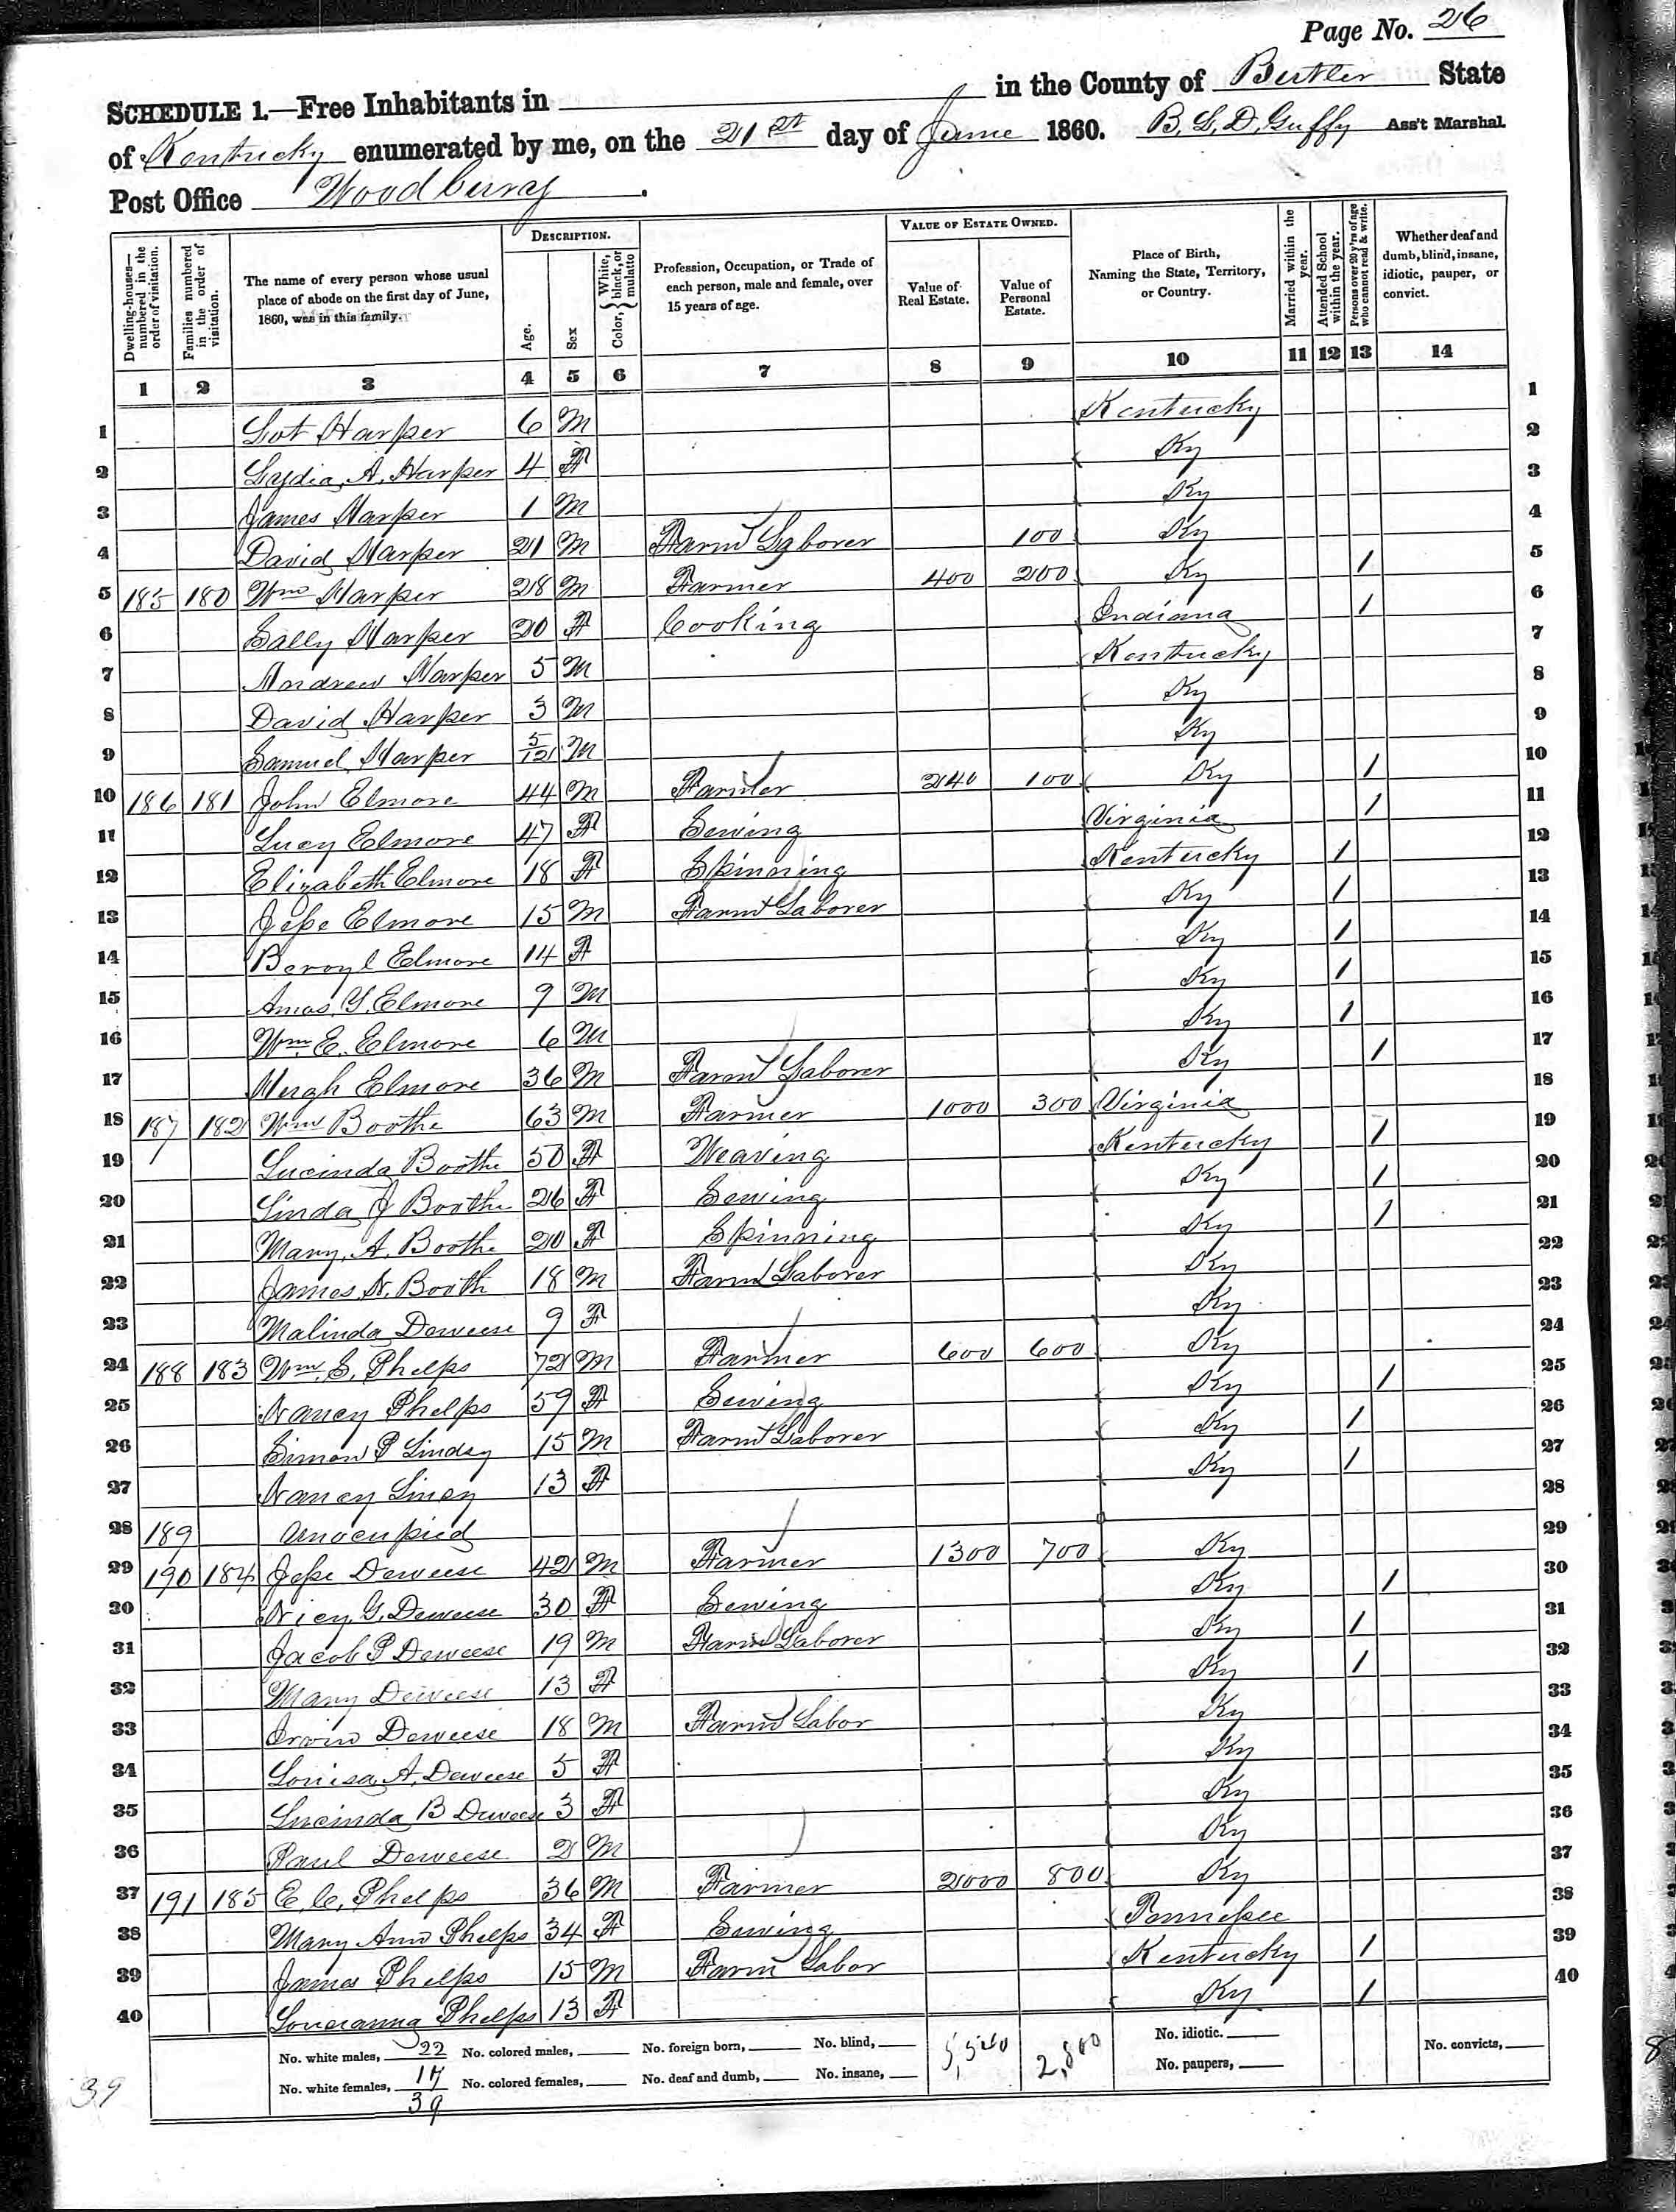 Page No. 26
SCHEDULE 1.—Free Inhabitants in in the County of Butler State
of Kentucky enumerated by me, on the 21st day of June 1860. B. L. D. Guffy Ass't Marshal.
Post Office Woodbury .
Dwelling-houses—numbered in the order of visitation. Families numbered in the order of visitation. The name of every person whose usual place of abode on the first day of June, 1860, was in this family. DESCRIPTION. Age. Sex Color, White, black, or mulatto Profession, Occupation, or Trade of each person, male and female, over 15 years of age. VALUE OF ESTATE OWNED. Value of Real Estate. Value of Personal Estate. Place of Birth, Naming the State, Territory, or Country. Married within the year. Attended School within the year. Persons over 20 y'rs of age who cannot read & write. Whether deaf and dumb, blind, insane, idiotic, pauper, or convict.
1 2 3 4 5 6 7 8 9 10 11 12 13 14
1 Lot Harper 6 M Kentucky 1
2 Lydia, A, Harper 4 F Ky 2
3 James Harper 1 M Ky 3
4 David Harper 21 M Farm Laborer 100 Ky 4
5 185 180 Wm Harper 28 M Farmer 400 200 Ky / 5
6 Sally Harper 20 F Cooking Indiana / 6
7 Andrew Harper 5 M Kentucky 7
8 David Harper 3 M Ky 8
9 Samuel Harper 5/12 M Ky 9
10 186 181 John Elmore 44 M Farmer 240 100 Ky / 10
11 Lucy Elmore 47 F Sewing Virginia / 11
12 Elizabeth Elmore 18 F Spinning Kentucky / 12
13 Jesse Elmore 15 M Farm Laborer Ky / 13
14 Elmore 14 F Ky / 14
15 Amos Y. Elmore 9 M Ky / 15
16 Wm. E. Elmore 6 M Ky / 16
17 Hugh Elmore 36 M Farm Laborer Ky / 17
18 187 182 Wm Boothe 63 M Farmer 1000 300 Virginia 18
19 Lucinda Boothe 50 F Weaving Kentucky / 19
20 Linda J Boothe 26 F Sewing Ky / 20
21 Mary, A. Boothe 20 F Spinning Ky / 21
22 James N. Booth 18 M Farm Laborer Ky 22
23 Malinda Deweese 9 F Ky 23
24 188 183 Wm. S. Phelps 72 M Farmer 600 600 Ky 24
25 Nancy Phelps 59 F Sewing Ky / 25
26 Simon P Lindsy 15 M Farm Laborer Ky / 26
27 Nancy 13 F Ky / 27
28 189 Unocupied 28
29 190 184 Jesse Deweese 42 M Farmer 1300 700 Ky 29
30 Nicy G. Deweese 30 F Sewing Ky / 30
31 Jacob P Deweese 19 M Farm Laborer Ky / 31
32 Mary Deweese 13 F Ky / 32
33 Irvin Deweese 18 M Farm Labor Ky 33
34 Louisa A. Deweese 5 F Ky 34
35 Lucinda B Deweese 3 F Ky 35
36 Paul Deweese 2 M Ky 36
37 191 185 E. C. Phelps 36 M Farmer 2000 800 Ky 37
38 Mary Ann Phelps 34 F Sewing Tennessee 38
39 James Phelps 15 M Farm Labor Kentucky / 39
40 Phelps 13 F Ky / 40
No. white males, 22 No. colored males, No. foreign born, No. blind, 5,540 2,800 No. idiotic. No. convicts,
No. white females, 17 No. colored females, No. deaf and dumb, No. insane, No. paupers,
39
39